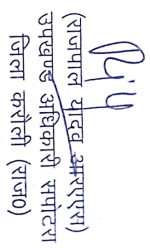 (राजपाल यादव आरएएस)
उपखण्ड अधिकारी सपोटरा
जिला करौली (राज०)